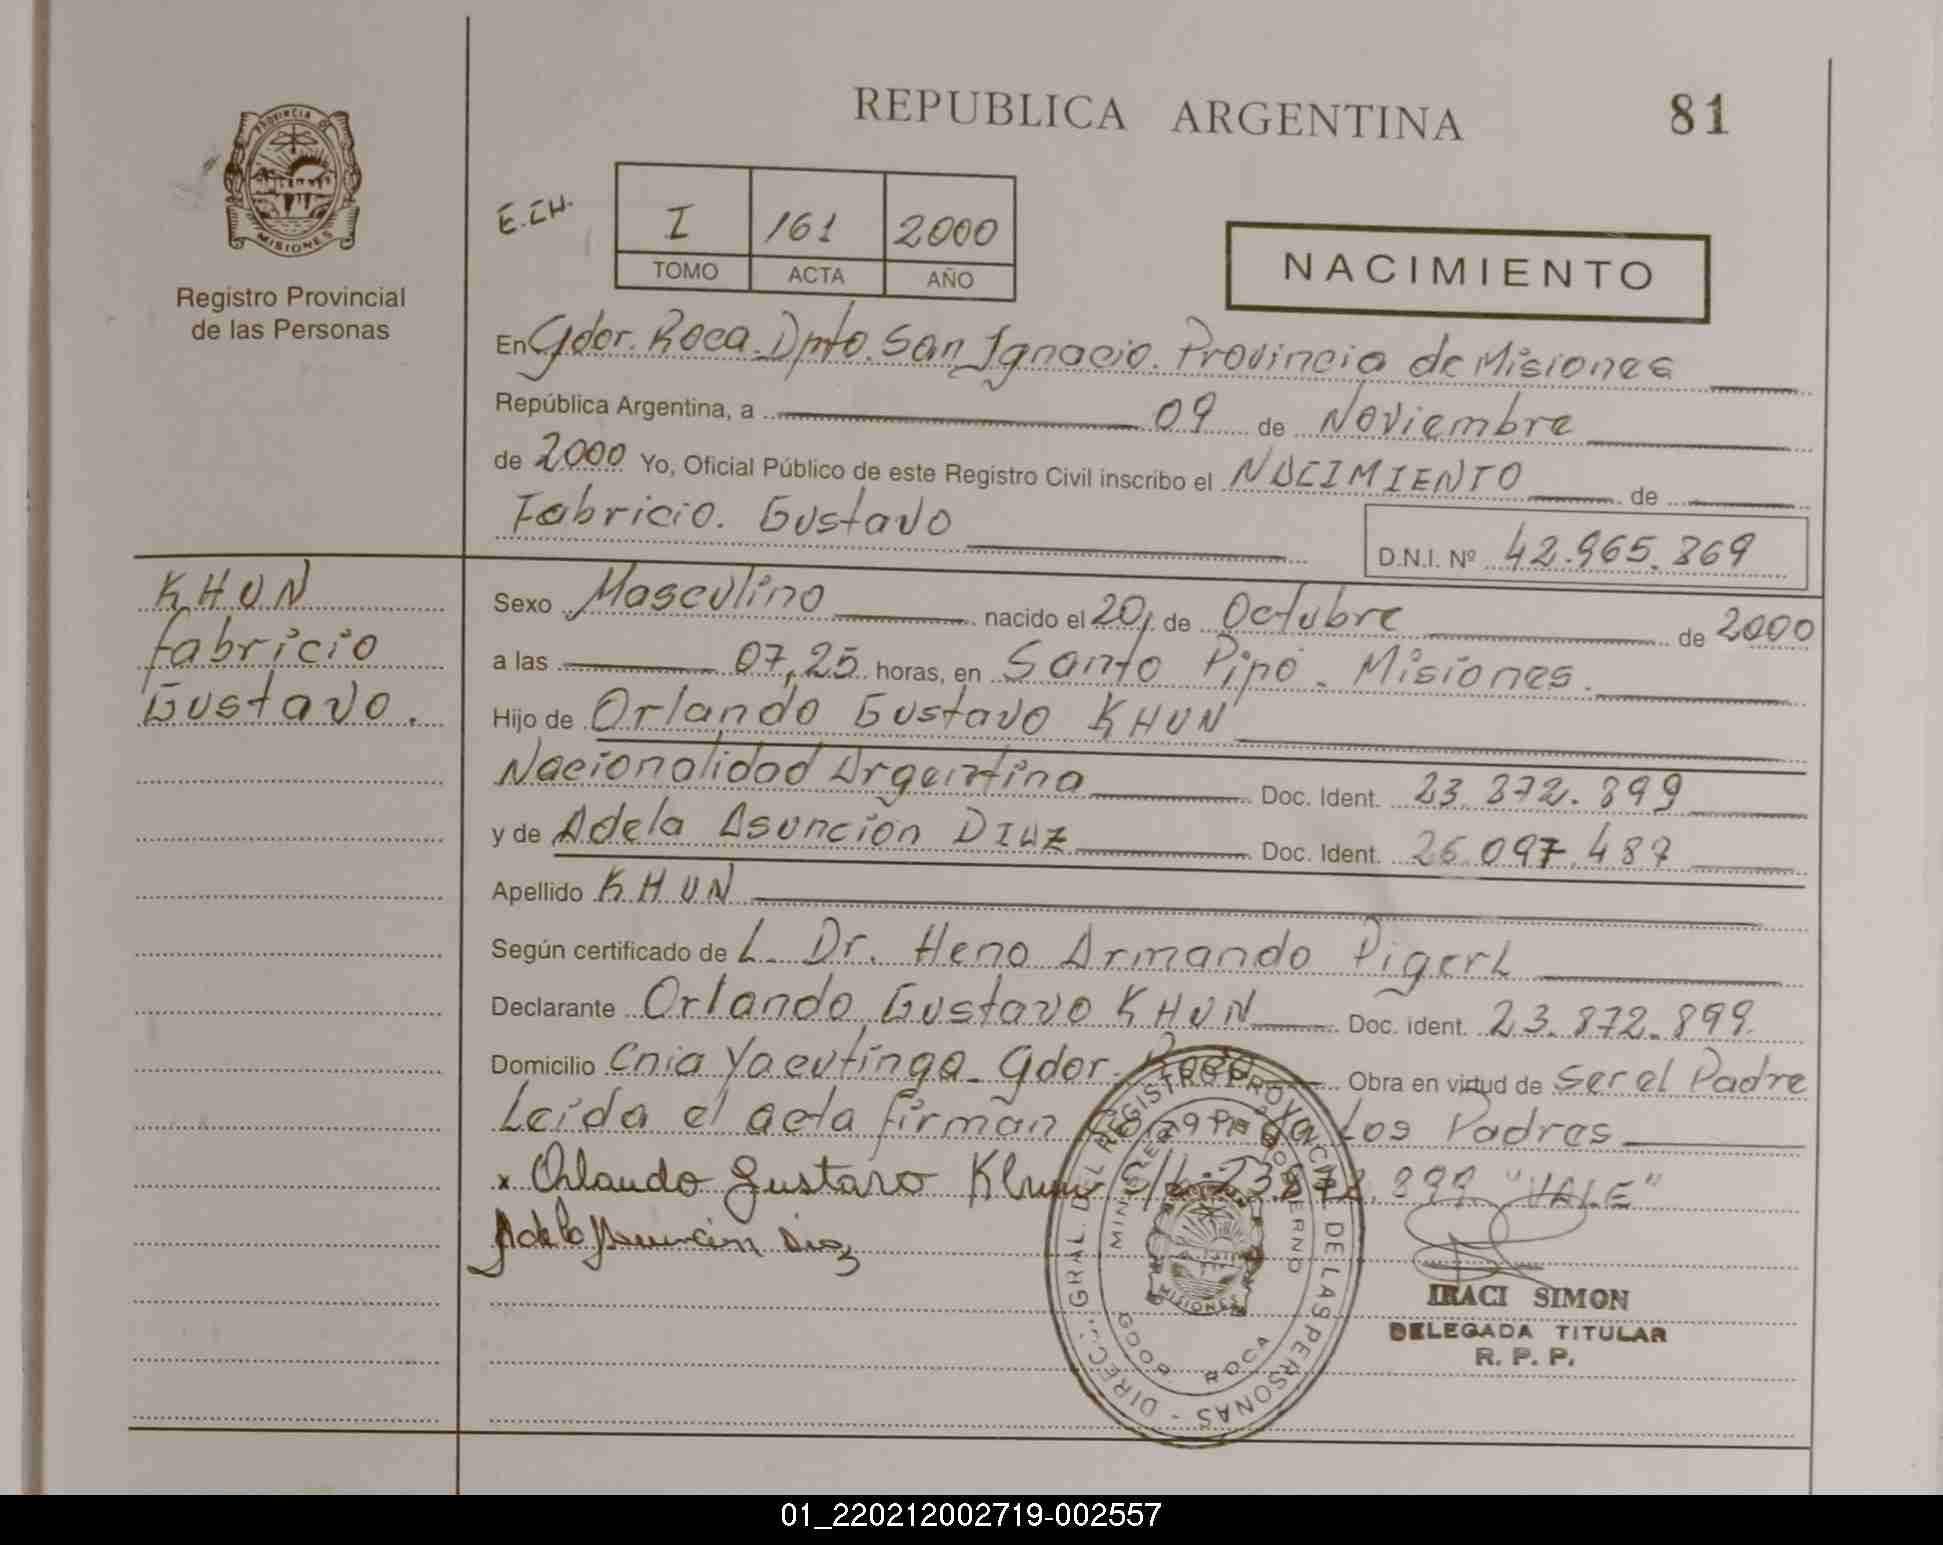 REPUBLICA ARGENTINA
81
PROVINCIA DE
MISIONES
Registro Provincial
de las Personas
E.CH.
I 161 2000
TOMO ACTA AÑO
NACIMIENTO
En Gdor. Roca. Dpto. San Ignacio. Provincia de Misiones
República Argentina, a 09 de Noviembre
de 2000 Yo, Oficial Público de este Registro Civil inscribo el NACIMIENTO de
Fabricio. Gustavo
D.N.I. Nº 42.965.869
KHUN
fabricio
Gustavo.
Sexo Masculino nacido el 20, de Octubre de 2000
a las 07,25 horas, en Santo Pipó - Misiones.
Hijo de Orlando Gustavo KHUN
Nacionalidad Argentina Doc. Ident. 23.872.899
y de Adela Asunción DIAZ Doc. Ident. 26.097.487
Apellido KHUN
Según certificado de L. Dr. Heno Armando Pigerl
Declarante Orlando Gustavo KHUN Doc. ident. 23.872.899.
Domicilio Cnia Yacutinga - Gdor. Roca Obra en virtud de ser el Padre
Leída el acta firman Los Padres
x Orlando Gustavo Khun 23.872.899 "VALE"
Adela Asunción Diaz
DIREC. GRAL. DEL REGISTRO PROVINCIAL DE LAS PERSONAS -
MINISTERIO DE GOBIERNO
MISIONES
GDOR. ROCA
IRACI SIMON
DELEGADA TITULAR
R. P. P.
01_220212002719-002557